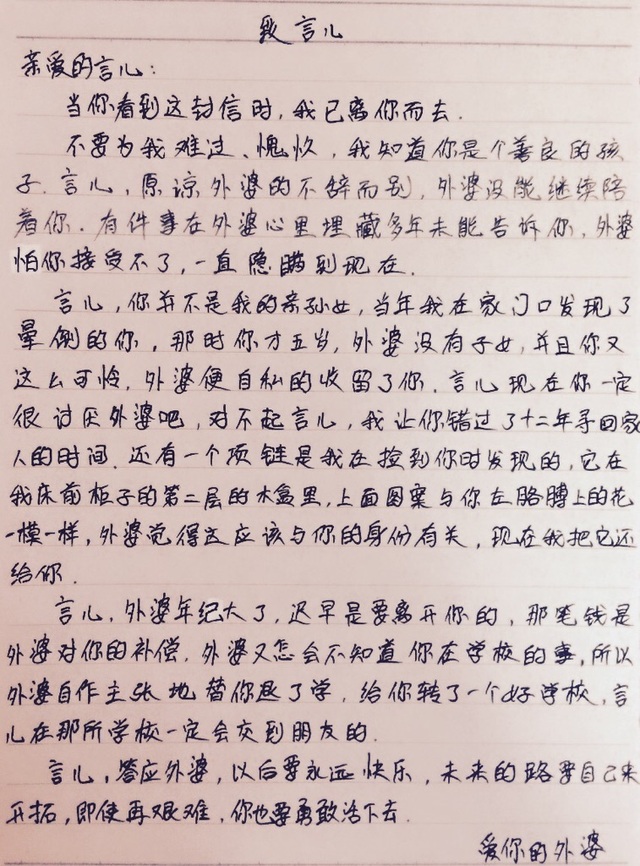 致言儿
亲爱的言儿：
当你看到这封信时，我已离你而去.
不要为我难过、愧疚，我知道你是个善良的孩
子.言儿，原谅外婆的不辞而别，外婆没能继续陪
着你.有件事在外婆心里埋藏多年未能告诉你，外婆
怕你接受不了，一直隐瞒到现在.
言儿，你并不是我的亲孙女，当年我在家门口发现了
晕倒的你，那时你才五岁，外婆没有子女，并且你又
这么可怜，外婆便自私的收留了你.言儿现在你一定
很讨厌外婆吧，对不起言儿，我让你错过了十二年寻回家
人的时间.还有一个项链是我在捡到你时发现的，它在
我床前柜子的第二层的木盒里，上面图案与你左胳膊上的花
一模一样，外婆觉得这应该与你的身份有关，现在我把它还
给你.
言儿，外婆年纪大了，迟早是要离开你的，那笔钱是
外婆对你的补偿，外婆又怎会不知道你在学校的事，所以
外婆自作主张地替你退了学，给你转了一个好学校，言
儿在那所学校一定会交到朋友的.
言儿，答应外婆，以后要永远快乐，未来的路要自己来
开拓，即使再艰难，你也要勇敢活下去.
爱你的外婆